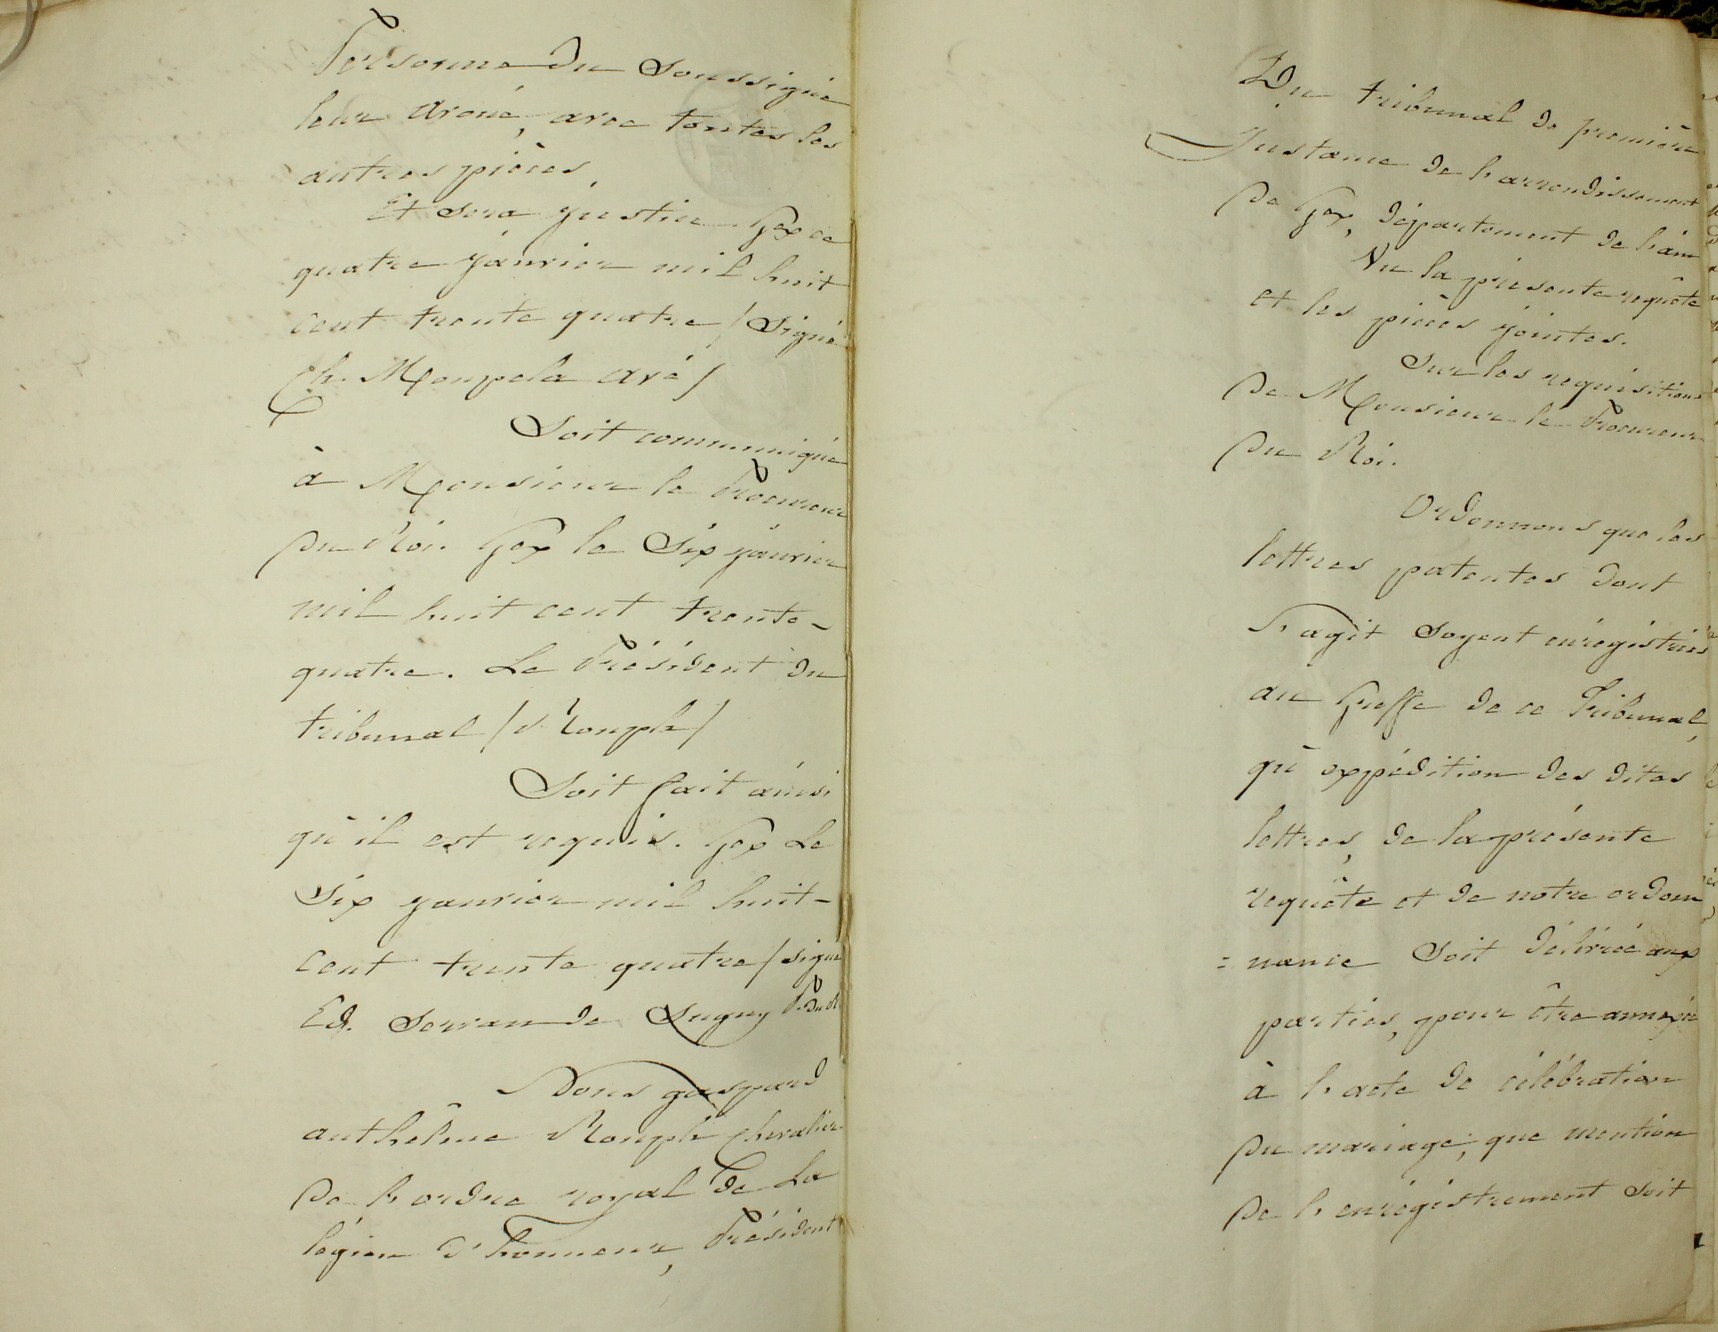 Personne du Soussigné
leur avoué, avec toutes les
autres pièces.
Et sera justice. Gex ce
quatre janvier mil huit
cent trente quatre / Signé
Ch. avé /
Soit communiqué
à Monsieur le Procureur
du Roi. Gex le Six janvier
mil huit cent trente-
quatre. Le Président du
tribunal /
Soit fait ainsi
qu'il est requis. Gex Le
Six janvier mil huit-
cent trente quatre / signé
Ed. de
Nous gaspard
anthelme chevalier
de l'ordre royal de La
légion d'honneur, Président
Du tribunal de première
Instance de l'arrondissement
de Gex, département de l'ain
Vu la présente requête
et les pièces jointes.
Sur les requisitions
de Monsieur le Procureur
du Roi.
Ordonnons que les
lettres patentes dont
s'agit soyent enrégistrées
au Greffe de ce Tribunal,
qu'expédition des dites
lettres, de la présente
requête et de notre ordon
= nance soit délivrée aux
parties, pour être annexée
à l'acte de célébration
du mariage; que mention
de l'enrégistrement soit